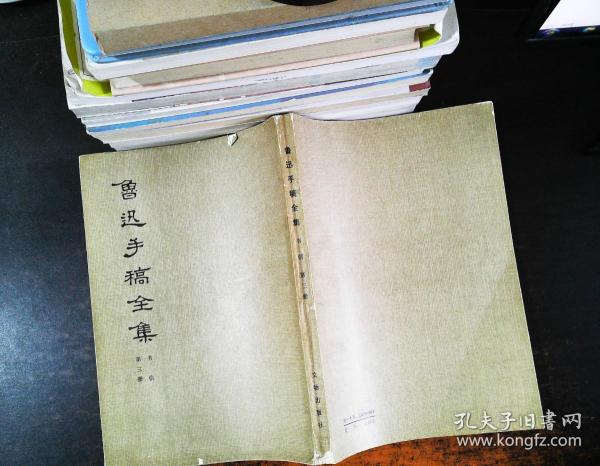 魯迅手稿全集
书信
第三册
鲁迅手稿全集 书信 第三册
文物出版社
孔夫子旧书网
www.kongfz.com